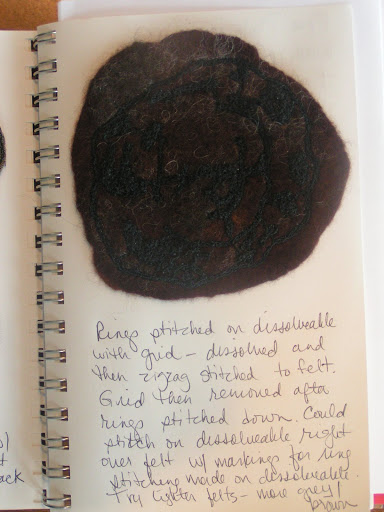 Rings stitched on dissolveable
with grid - dissolved and
then zigzag stitched to felt.
Grid then removed after
rings stitched down. Could
stitch on dissolveable right
over felt w/ markings for ring
stitching made on dissolveable.
Try lighter felts - more grey/
brown
ack